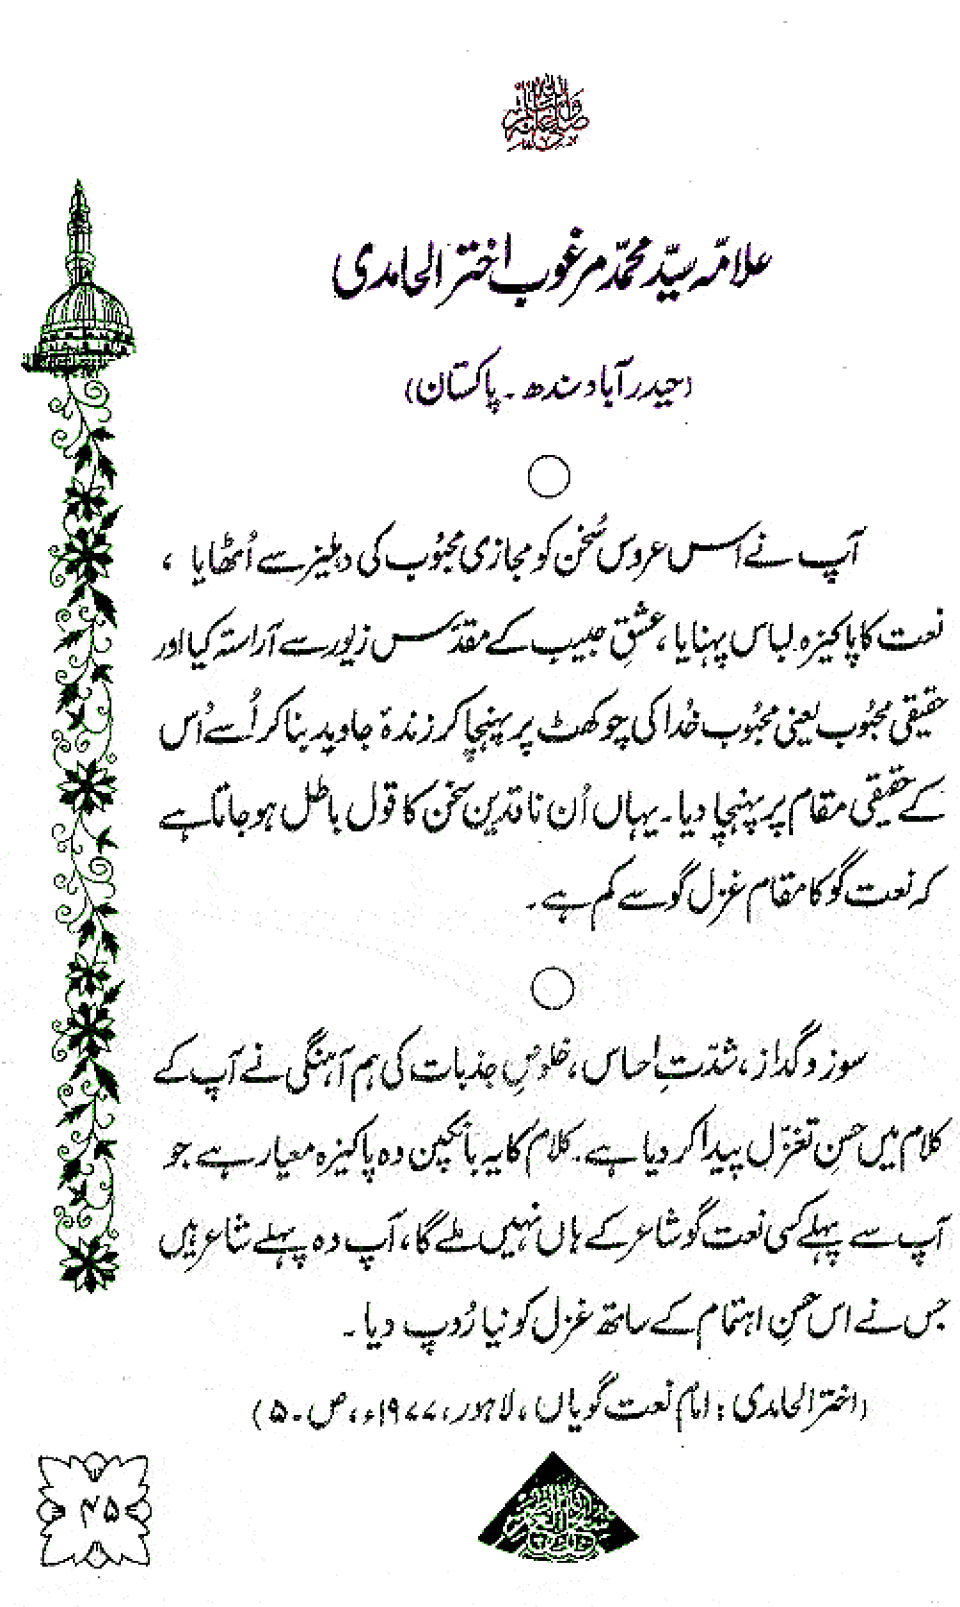 صلی اللہ علیہ وآلہ وسلم
علامّہ سیّد محمّد مرغوب اختر الحامدی
(حیدر آباد سندھ ۔ پاکستان)
آپ نے اس عروسِ سُخن کو مجازی محبُوب کی دہلیز سے اُٹھایا ،
نعت کا پاکیزہ لباس پہنایا ، عشقِ حبیب کے مقدّس زیور سے آراستہ کیا اور
حقیقی محبُوب یعنی محبُوب خُدا کی چوکھٹ پر پہنچا کر زندۂ جاوید بنا کر اُسے اُس
کے حقیقی مقام پر پہنچا دیا ۔ یہاں اُن ناقدین سخن کا قول باطل ہو جاتا ہے
کہ نعت گو کا مقام غزل گو سے کم ہے ۔
سوز و گداز ، شدّتِ احساس ، خلوصِ جذبات کی ہم آہنگی نے آپ کے
کلام میں حسنِ تغزّل پیدا کر دیا ہے ۔ کلام کا یہ بانکپن وہ پاکیزہ معیار ہے جو
آپ سے پہلے کسی نعت گو شاعر کے ہاں نہیں ملے گا ، آپ وہ پہلے شاعر ہیں
جس نے اس حسنِ اہتمام کے ساتھ غزل کو نیا رُوپ دیا ۔
(اختر الحامدی : امام نعت گویاں ، لاہور ، ۱۹۷۷ء ، ص ۔ ۵۰)
۴۵